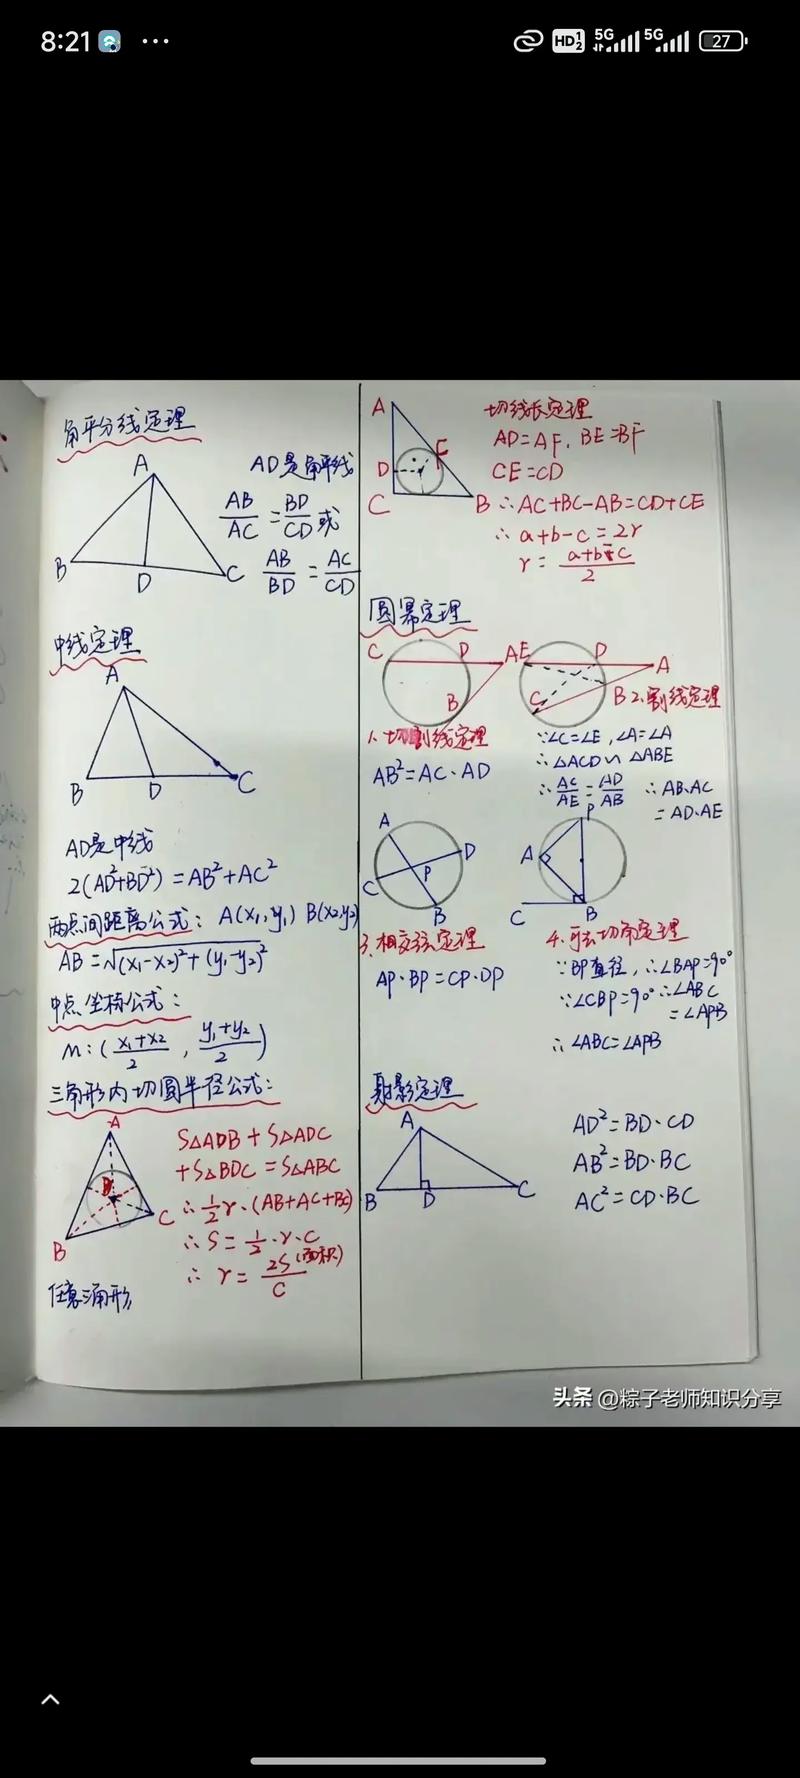 8:21 ...
HD 1 2 5G 5G 27
角平分线定理
A
B
D
C
AD是角平线
AB/AC = BD/CD 或
AB/BD = AC/CD
中线定理
A
B
D
C
AD是中线
2(AD²+BD²)=AB²+AC²
两点间距离公式: A(x₁,y₁) B(x₂,y₂)
AB=√(x₁-x₂)²+(y₁-y₂)²
中点坐标公式:
M:(x₁+x₂/2, y₁+y₂/2)
三角形内切圆半径公式:
A
B
C
S△ADB+S△ADC
+S△BDC=S△ABC
∴ 1/2 r·(AB+AC+BC)
∴ S=1/2·r·C
∴ r=2S(面积)/C
任意三角形
A
D
F
C
B
切线长定理
AD=AF, BE=BF
CE=CD
∴AC+BC-AB=CD+CE
∴ a+b-c=2r
r=a+b-c/2
圆幂定理
C D A
B
E D A
C B
1、切割线定理
AB²=AC·AD
2、割线定理
∵∠C=∠E,∠A=∠A
∴△ACD∽△ABE
∴ AC/AE=AD/AB ∴AB·AC
=AD·AE
A
D
C
P
B
3、相交弦定理
AP·BP=CP·DP
P
A
C
B
4、弦切角定理
∵BP直径,∴∠BAP=90°
∵∠CBP=90°∴∠ABC
=∠APB
∴∠ABC=∠APB
射影定理
A
B
D
C
AD²=BD·CD
AB²=BD·BC
AC²=CD·BC
头条 @粽子老师知识分享